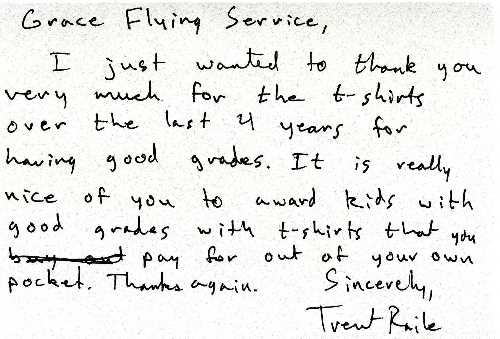 Grace Flying Service,
I just wanted to thank you
very much for the t-shirts
over the last 4 years for
having good grades. It is really
nice of you to award kids with
good grades with t-shirts that you
buy out pay for out of your own
pocket. Thanks again. Sincerely,
Trent Raile